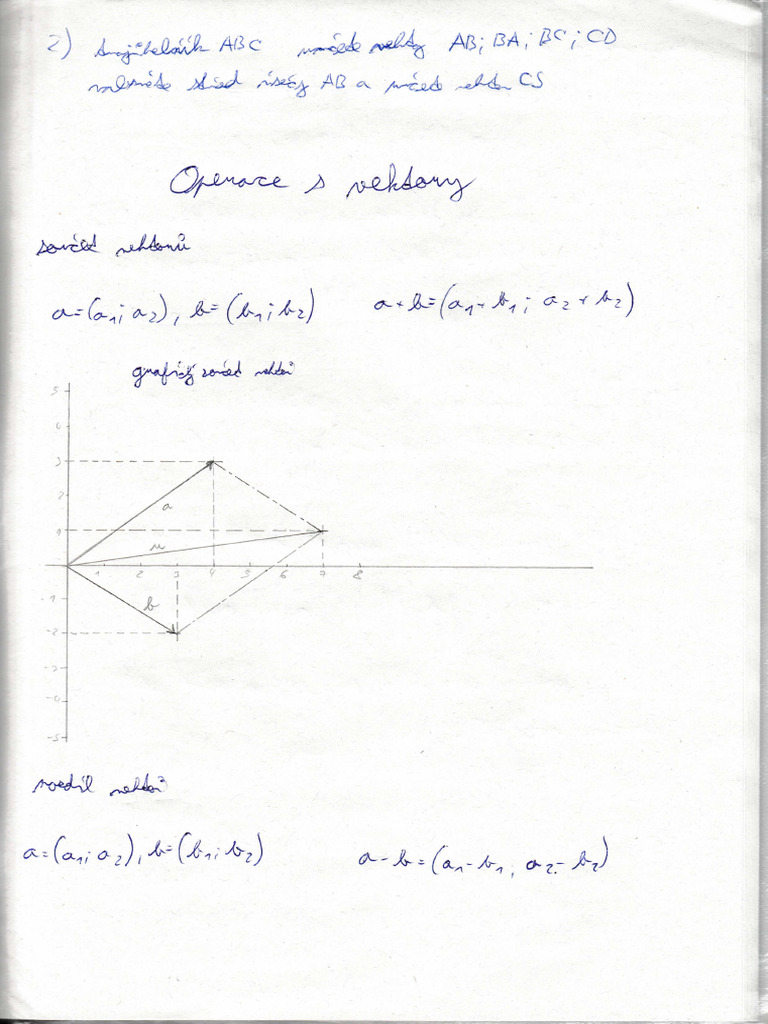 2) trojúhelník ABC určete vektory AB; BA; BC; CD
střed úsečky AB a určete vektor CS
Operace s vektory
součet vektorů
a=(a₁; a₂), b=(b₁; b₂) a+b=(a₁+b₁; a₂+b₂)
grafický součet vektorů
5
4
3
2
a
1
u
1 2 3 4 5 6 7 8
-1
b
-2
-3
-4
-5
rozdíl vektorů
a=(a₁; a₂), b=(b₁; b₂) a-b=(a₁-b₁; a₂-b₂)